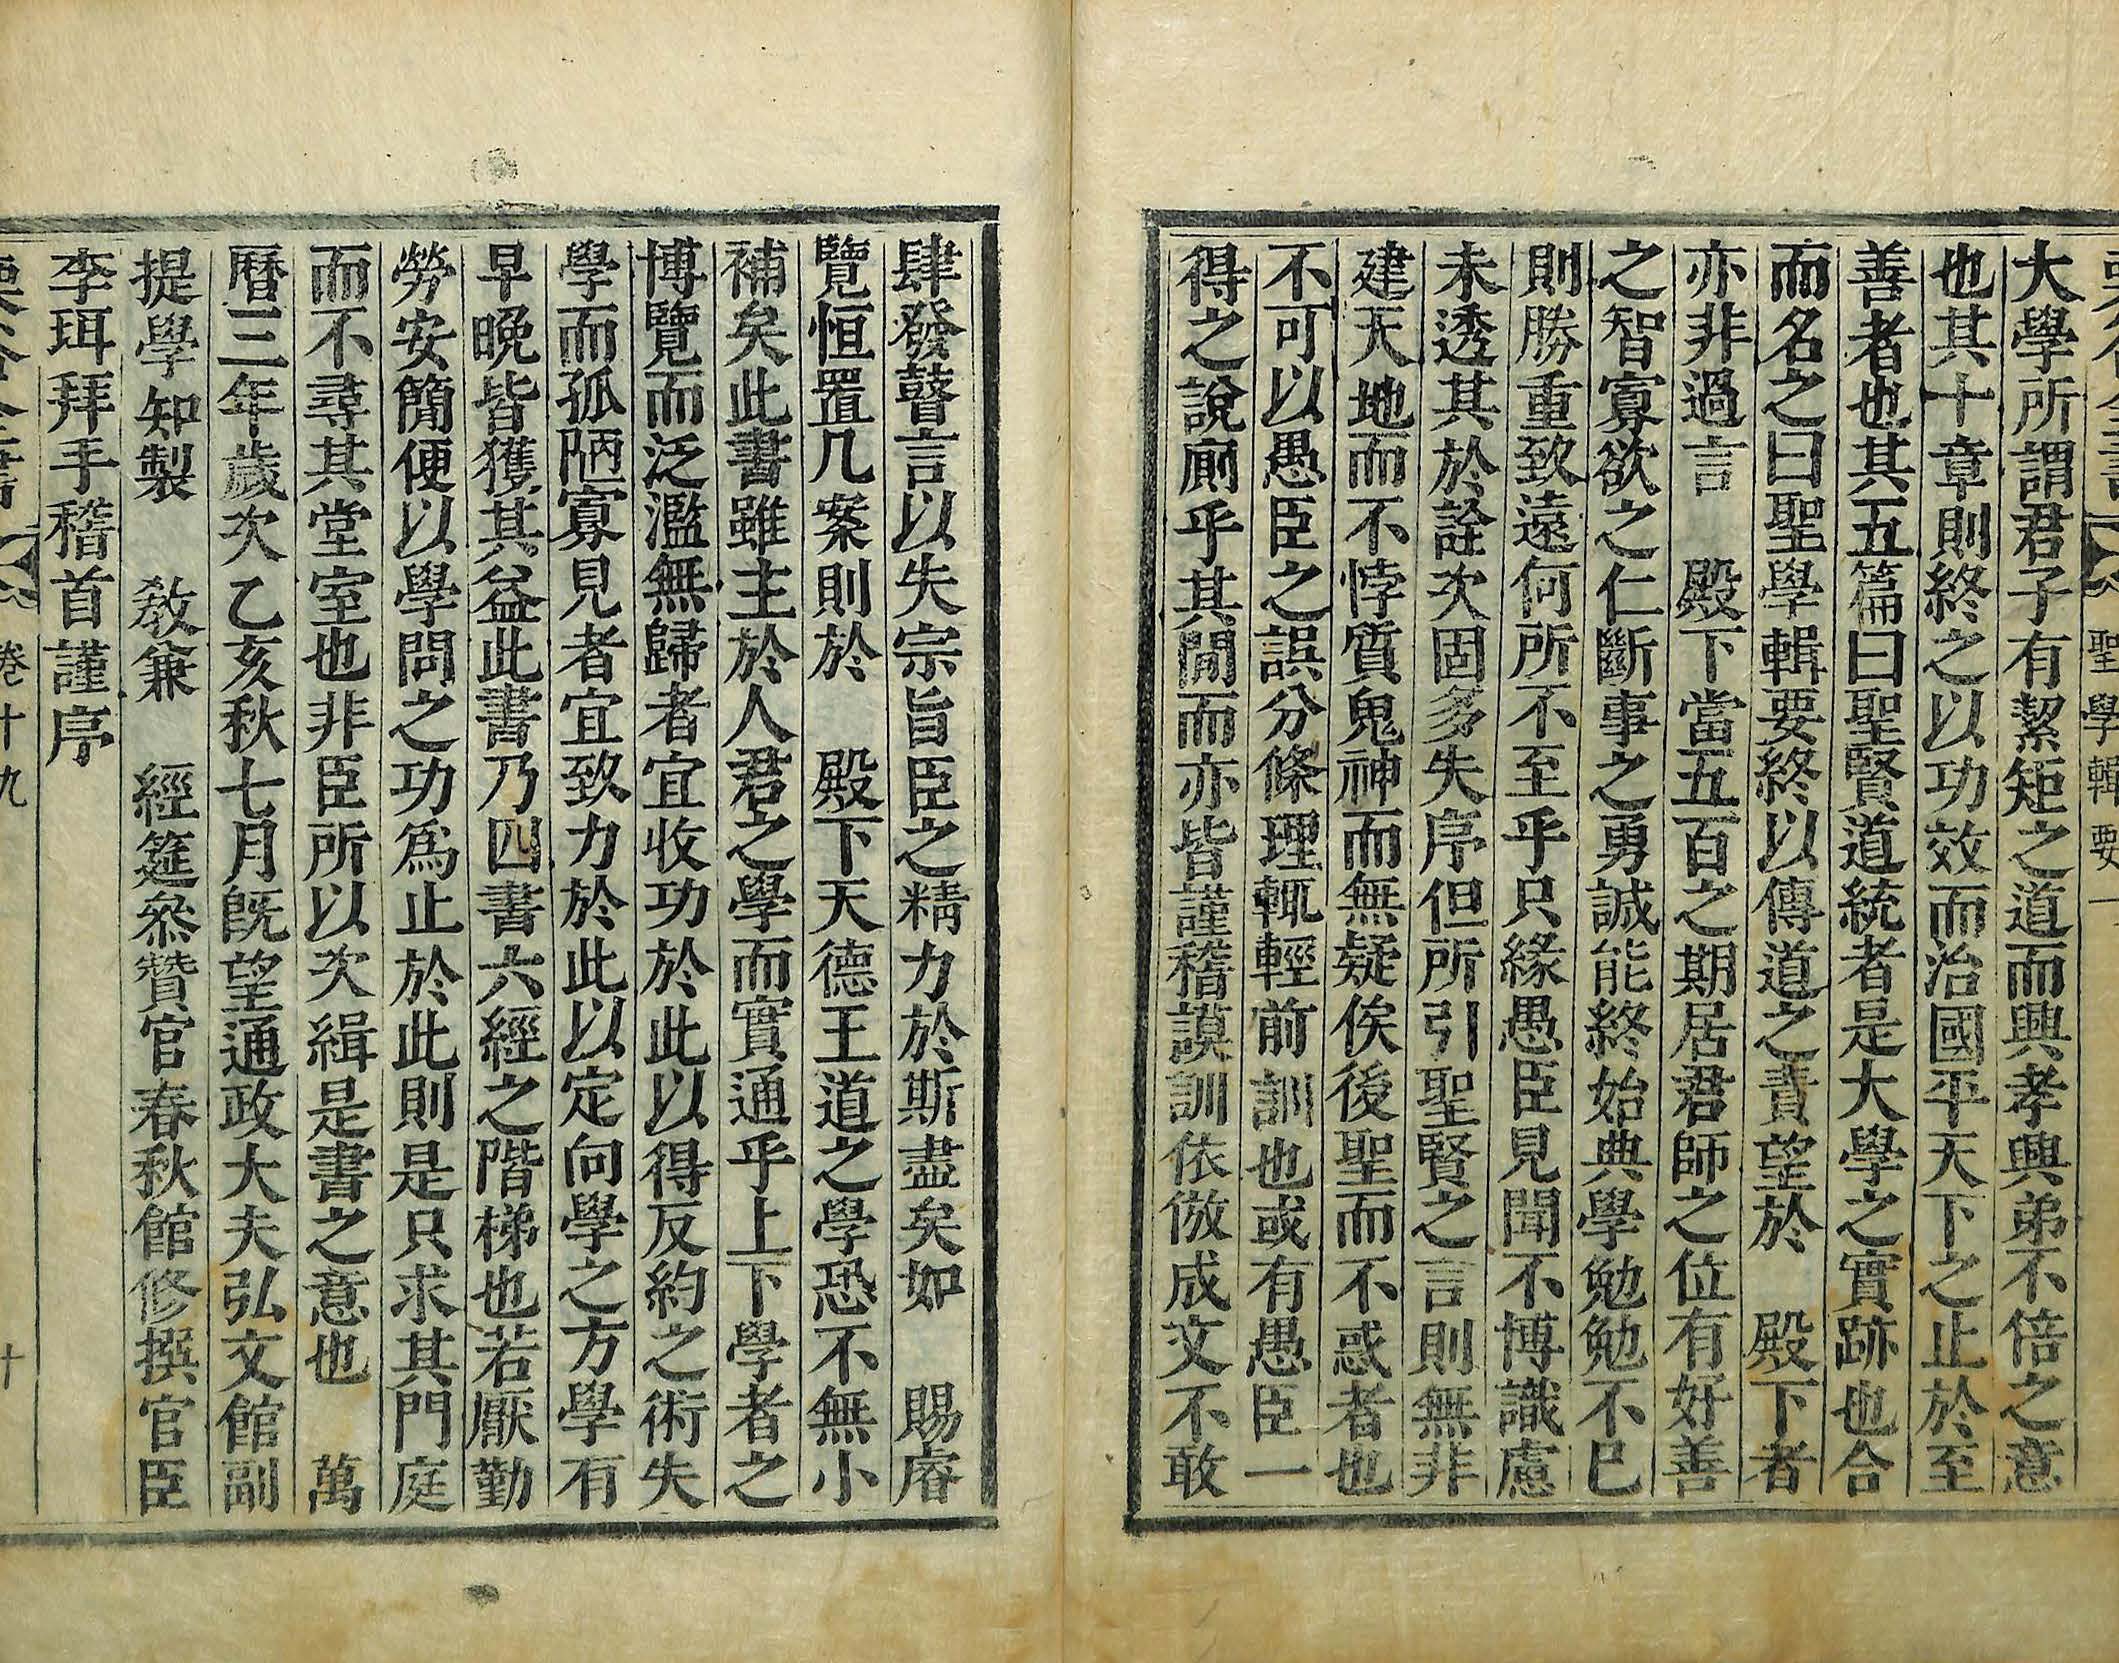 聖學輯要一
大學所謂君子有絜矩之道而興孝興弟不倍之意
也其十章則終之以功效而治國平天下之止於至
善者也其五篇曰聖賢道統者是大學之實跡也合
而名之曰聖學輯要終以傳道之責望於 殿下者
亦非過言 殿下當五百之期居君師之位有好善
之智寡欲之仁斷事之勇誠能終始典學勉勉不已
則勝重致遠何所不至乎只緣愚臣見聞不博識慮
未透其於詮次固多失序但所引聖賢之言則無非
建天地而不悖質鬼神而無疑俟後聖而不惑者也
不可以愚臣之誤分條理輒輕前訓也或有愚臣一
得之說廁乎其閒而亦皆謹稽謨訓依倣成文不敢
肆發瞽言以失宗旨臣之精力於斯盡矣如 賜睿
覽恒置几案則於 殿下天德王道之學恐不無小
補矣此書雖主於人君之學而實通乎上下學者之
博覽而泛濫無歸者宜收功於此以得反約之術失
學而孤陋寡見者宜致力於此以定向學之方學有
早晚皆獲其益此書乃四書六經之階梯也若厭勤
勞安簡便以學問之功爲止於此則是只求其門庭
而不尋其堂室也非臣所以次緝是書之意也 萬
曆三年歲次乙亥秋七月旣望通政大夫弘文館副
提學知製 敎兼 經筵叅贊官春秋館修撰官臣
李珥拜手稽首謹序
卷十九 十